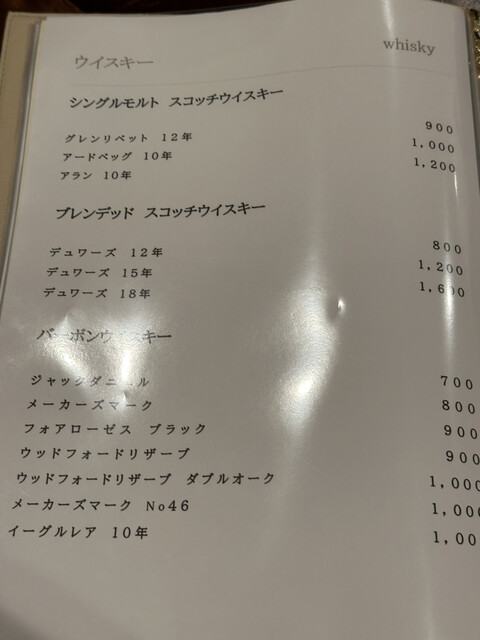 ウイスキー whisky
シングルモルト スコッチウイスキー
グレンリベット 12年 900
アードベッグ 10年 1,000
アラン 10年 1,200
ブレンデッド スコッチウイスキー
デュワーズ 12年 800
デュワーズ 15年 1,200
デュワーズ 18年 1,600
バーボンウイスキー
ジャックダニエル 700
メーカーズマーク 800
フォアローゼス ブラック 900
ウッドフォードリザーブ 900
ウッドフォードリザーブ ダブルオーク 1,000
メーカーズマーク No46 1,000
イーグルレア 10年 1,00